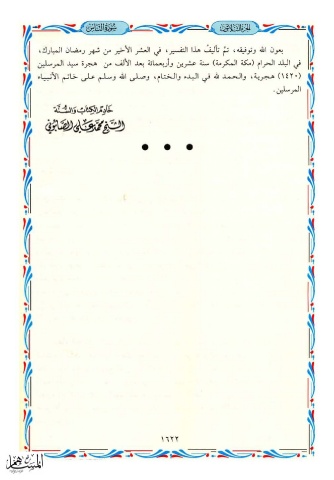 الجزء الثلاثون
سورة الناس
بعون الله وتوفيقه، تمَّ تأليفُ هذا التفسير، في العشر الأخير من شهر رمضان المبارك،
في البلد الحرام (مكة المكرمة) سنة عشرين وأربعمائة بعد الألف من هجرة سيد المرسلين
(١٤٢٠) هجرية، والحمد لله في البدء والختام، وصلى الله وسلم على خاتم الأنبياء
المرسلين.
خادم الكتاب والسنة
الشيخ محمد علي الصابوني
١٦٢٢